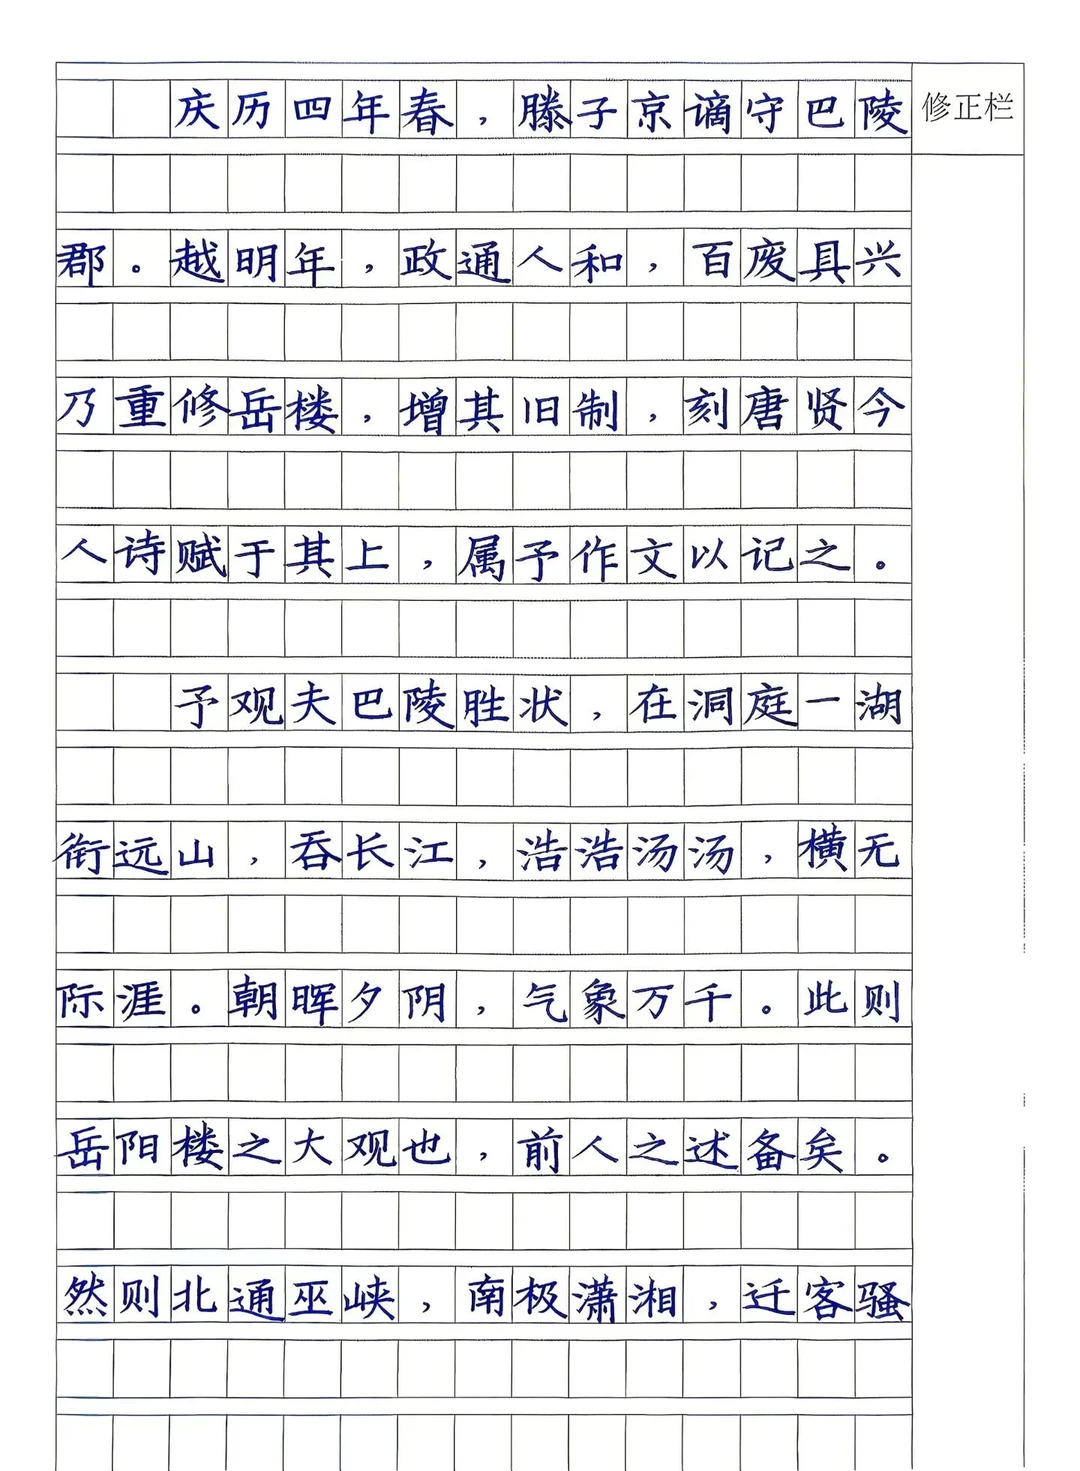 庆历四年春，滕子京谪守巴陵
修正栏
郡。越明年，政通人和，百废具兴
乃重修岳楼，增其旧制，刻唐贤今
人诗赋于其上，属予作文以记之。
予观夫巴陵胜状，在洞庭一湖
衔远山，吞长江，浩浩汤汤，横无
际涯。朝晖夕阴，气象万千。此则
岳阳楼之大观也，前人之述备矣。
然则北通巫峡，南极潇湘，迁客骚